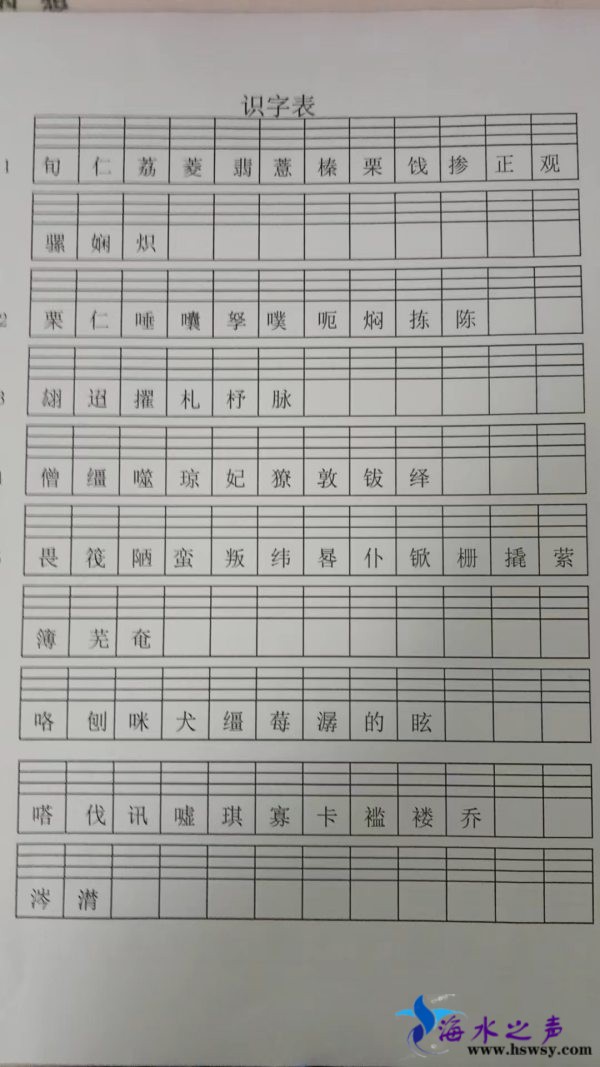 识字表
1 旬 仁 荔 菱 翡 薏 榛 栗 饯 掺 正 观
骡 娴 炽
2 栗 仁 唾 囔 孥 噗 呃 焖 拣 陈
3 翃 迢 擢 札 杼 脉
僧 缰 噬 琼 妃 獠 敦 钹 绎
畏 筏 陋 蛮 叛 纬 晷 仆 锨 栅 撬 萦
簿 芜 奄
咯 刨 咪 犬 缰 莓 潺 的 眩
嗒 伐 讯 嘘 琪 寡 卡 褴 褛 乔
涔 潸
海水之声
www.hswsy.com